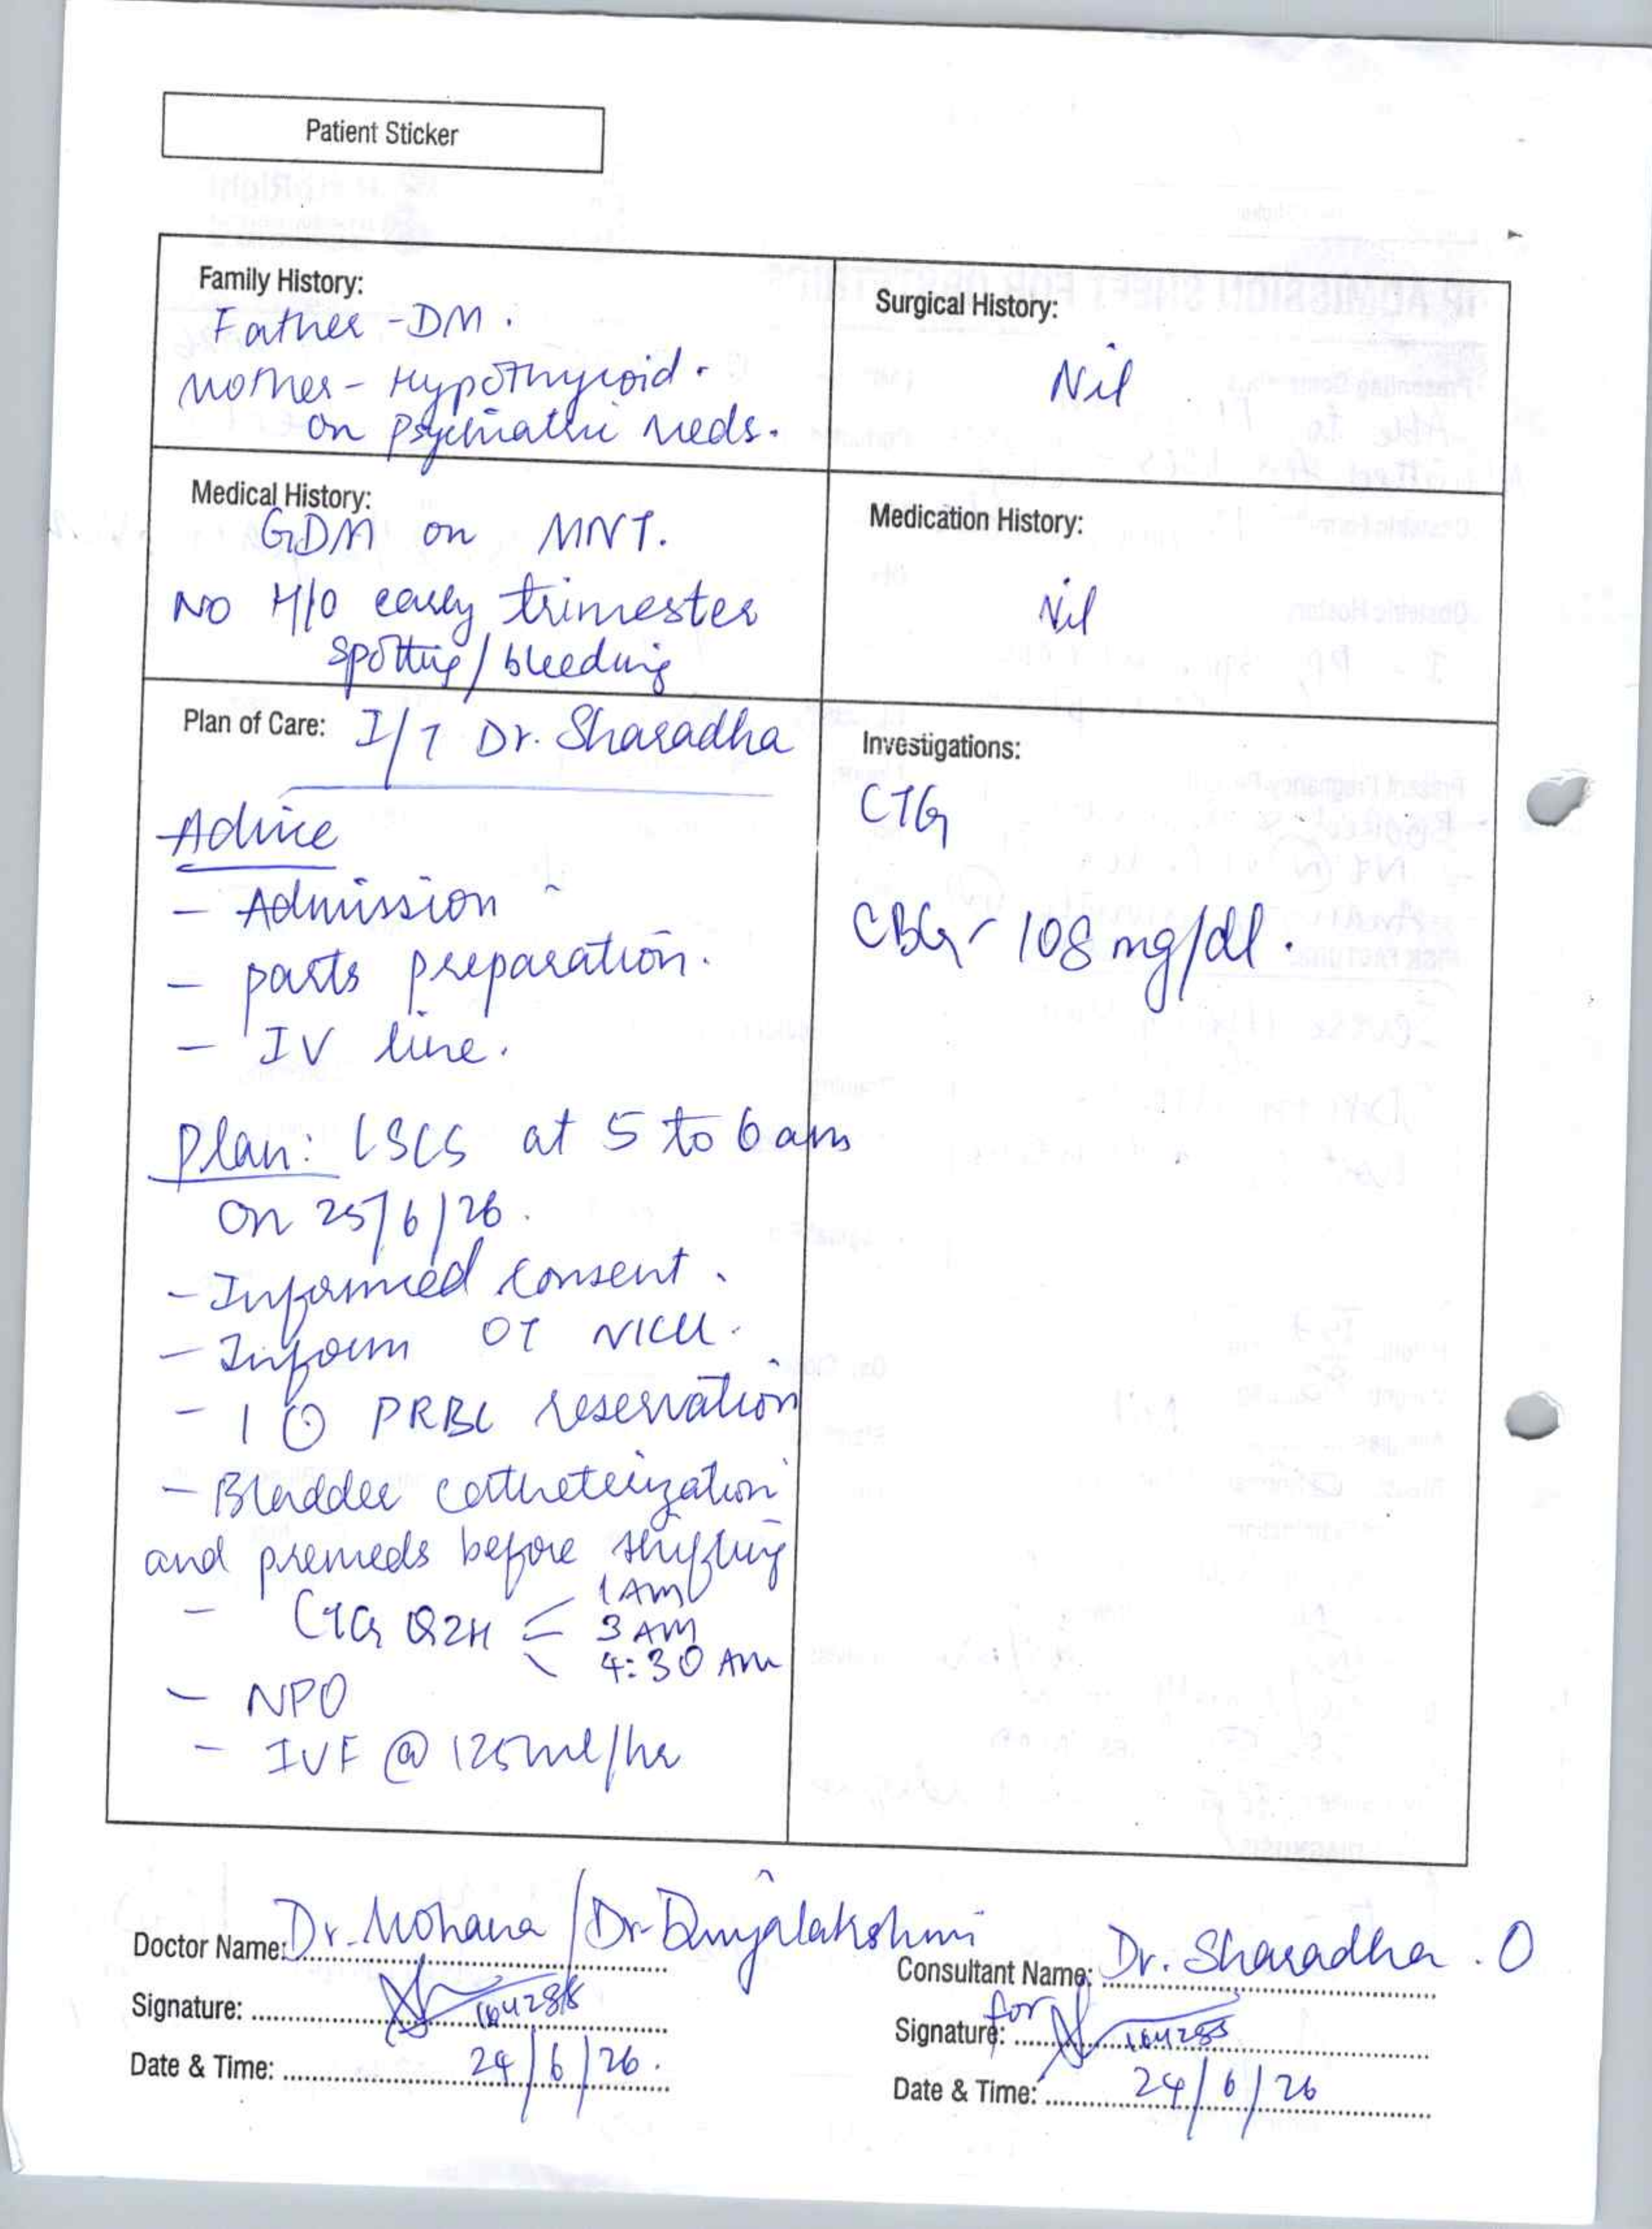 Patient Sticker
Family History:
Father - DM.
Mother - Hypothyroid.
on psychiatric meds.
Surgical History:
Nil
Medical History:
GDM on MNT.
NO H/O early trimester
spotting / bleeding
Medication History:
Nil
Plan of Care: I/T Dr. Sharadha
Advice
- Admission
- parts preparation.
- IV line.
Plan: LSCS at 5 to 6 am
on 25/6/26.
- Informed consent.
- Inform OT NICU.
- 1 U PRBC reservation
- Bladder catheterization
and premeds before shifting
- CTG Q2H 1 AM
3 AM
4:30 AM
- NPO
- IVF @ 125ml/hr
Investigations:
CTG
CBG - 108 mg/dl.
Doctor Name: Dr. Mohana / Dr.
Signature: 164288
Date & Time: 24/6/26.
Consultant Name: Dr. Sharadha . O
Signature: for 164288
Date & Time: 24/6/26